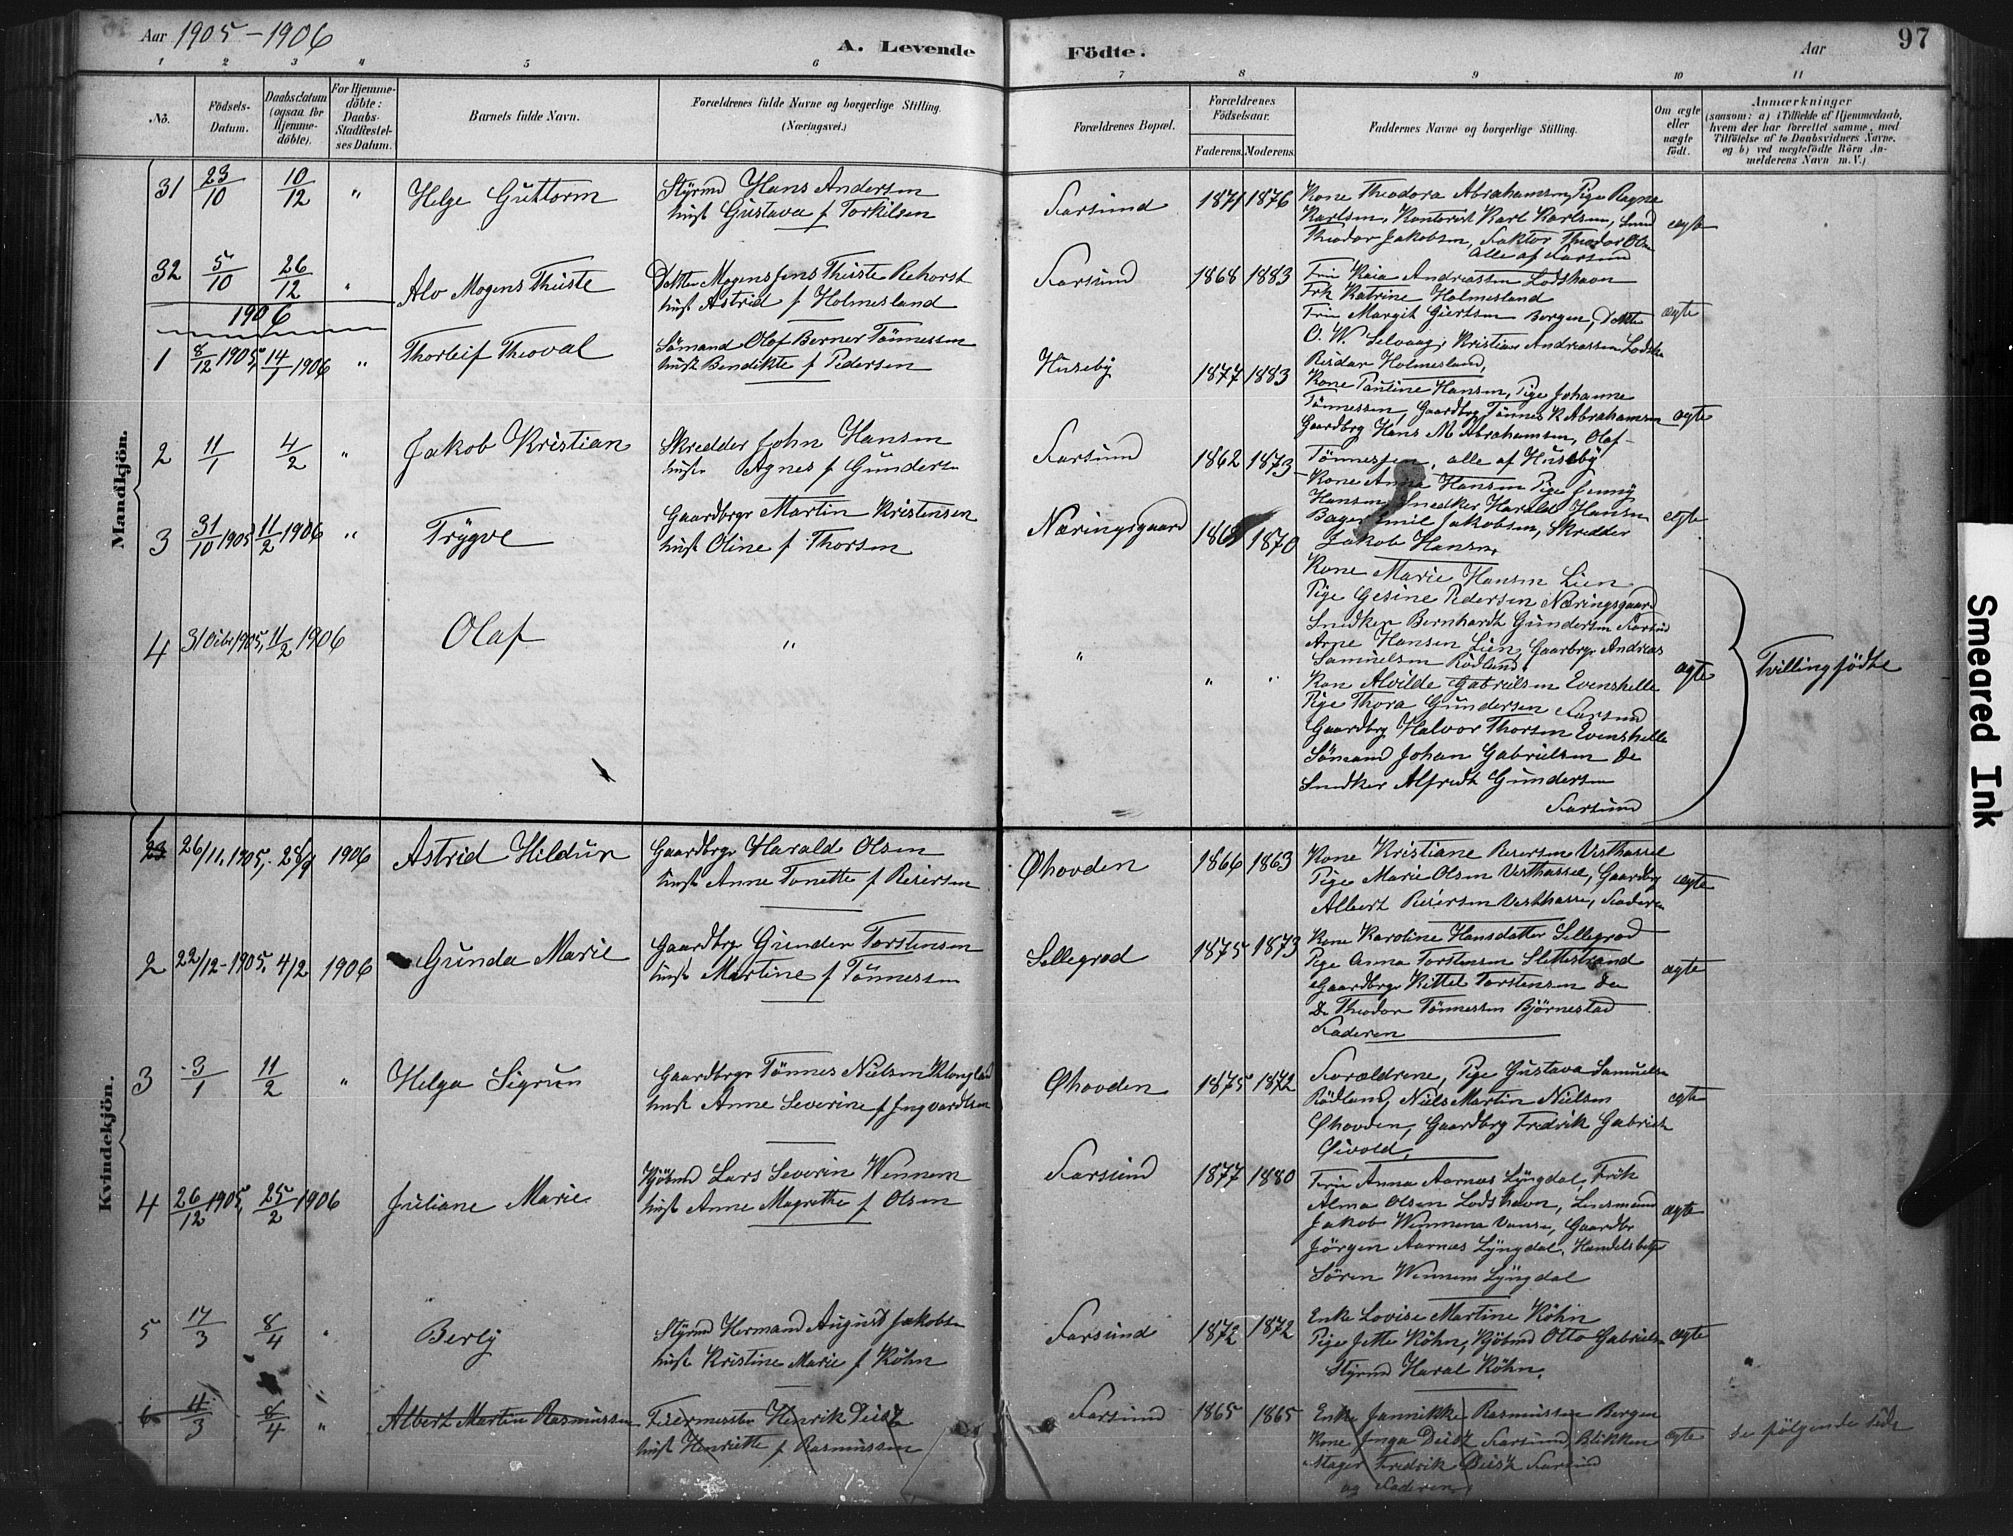 Aar 1905-1906
A. Levende Födte.
Aar
97
1 2 3 4 5 6 7 8 9 10 11
No.
Födsels-
Datum.
Daabsdatum
(ogsaa for
Hjemme-
döbte).
For Hjemme-
döbte:
Daabs-
Stadfæstel-
ses Datum.
Barnets fulde Navn.
Forældrenes fulde Navne og borgerlige Stilling.
(Næringsvei.)
Forældrenes Bopæl.
Forældrenes
Födselsaar.
Faderens. Moderens.
Faddernes Navne og borgerlige Stilling.
Om ægte
eller
uægte
födt.
Anmærkninger
(saasom: a) i Tilfælde af Hjemmedaab,
hvem der har forrettet samme, med
Tilföielse af to Daabsvidners Navne,
og b) ved uægtefödte Börn An-
melderens Navn m. V.)
Mandkjön.
31 23/10 10/12 " Helge Guttorm
Styrmd Hans Andersen
hust Gustava f Torkilsen
Farsund 1871 1876
Kone Theodora Abrahamsen, Pige Ragna
Karlsen, Kontorist Karl Karlsen, Smed
Theodor Jakobsen, Faktor Theodor Olsen
alle af Farsund
ægte
32 5/10 26/12 " Alv Mogens Thiste
Mogens Jens Thiste Rehorst
hust Astrid f Holmesland
Farsund 1868 1883
Fru Kaia Andreassen Lodshavn
Frk Katrine Holmesland
Fru Margit Giertsen Bergen,
O. W. Selvaag, Kristian Andreassen
Reidar Holmesland,
ægte
1906
1 8/12 1905, 14/1 1906 " Thorleif Theoval
Sömand Olaf Berner Tönnessen
hust Bendikte f Pedersen
Huseby 1877 1883
Kone Pauline Hansen, Pige Johanne
Tönnessen, Gaardbrg Tönnes K Abrahamsen
Gaardbrg Hans M Abrahamsen, Olaf
Tönnessen, alle af Huseby
ægte
2 11/1 4/2 " Jakob Kristian
Skredder John Hansen
hust Agnes f Gundersen
Farsund 1862 1873
Kone Anna Hansen Pige Jenny
Hansen, Snedker Harald Hansen
Bager Emil Jakobsen, Skredder
Jakob Hansen,
ægte
3 31/10 1905 11/2 1906 " Trygve
Gaardbrgr Martin Kristensen
hust Oline f Thorsen
Næringsgaard 1870
Kone Marie Hansen Lien
Pige Gesine Pedersen Næringsgaard
Snedker Bernhardt Gundersen Farsund
Arne Hansen Lien, Gaardbrgr Andreas
Samuelsen Rödland,
4 31 Octbr 1905, 11/2 1906 Olaf
" " " "
Kon Alvilde Gabrielsen Evenshelle
Pige Thora Gundersen Farsund
Gaardbrg Halvor Thorsen Evenshelle
Sömand Johan Gabrielsen Do
Snedker Alfredt Gundersen
Farsund
ægte
Tvillingfödte
Kvindekjön.
1 26/11, 1905, 28/1 1906 Astrid Hildur
Gaardbrgr Harald Olsen
hust Anne Tonette f Reiersen
Ohovden 1866 1863
Kone Kristiane Reiersen Vesthassel
Pige Marie Olsen Vesthassel, Gaardbrg
Albert Reiersen Vesthassel, Faderen
ægte
2 22/12-1905, 4/2 1906 Gunda Marie
Gaardbrgr Gunder Torstensen
hust Martine f Tönnessen
Sellegrod 1875 1873
Kone Karoline Hansdatter Sellegrod
Pige Anna Torstensen Slettestrand
Gaardbrgr Kittel Torstensen Do
Do Theodor Tönnessen Björnestad
Faderen
ægte
3 3/1 11/2 " Helga Sigrun
Gaardbrgr Tönnes Nielsen
hust Anne Severine f Ingvardtsen
Ohovden 1875 1872
Forældrene, Pige Gustava Samuelsen
Rödland, Niels Martin Nielsen
Ohovden, Gaardbrg Fredrik Gabrielsen
ægte
4 26/12 1905, 25/2 1906 Juliane Marie
Kjöbmd Lars Severin Wennem
hust Anne Magrethe f Olsen
Farsund 1877 1880
Fru Anna Aarnæs Lyngdal, Frök
Alma Olsen Lodshavn, Lensmand
Jakob Wennem Vanse, Gaardbr
Jörgen Aarnæs Lyngdal, Handelsbetj
Sören Wennem Lyngdal
ægte
5 17/3 8/4 " Berly
Styrmd Hermand August Jakobsen
hust Kristine Marie f Köhn
Farsund 1872 1872
Enke Lovise Martine Köhn
Pige Jette Köhn, Kjöbmd Otto Gabrielsen
Styrmd Haral Köhn.
ægte
6 4/3 8/4 " Albert Martin Rasmussen
Henrik Deisz
hust Henriette f Rasmussen
Farsund 1865 1865
Enke Jannikke Rasmussen Bergen
Kone Inga Deisz Farsund, Blikken-
slager Fredrik Deisz Farsund
og Faderen,
ægte
Se fölgende side
Smeared Ink